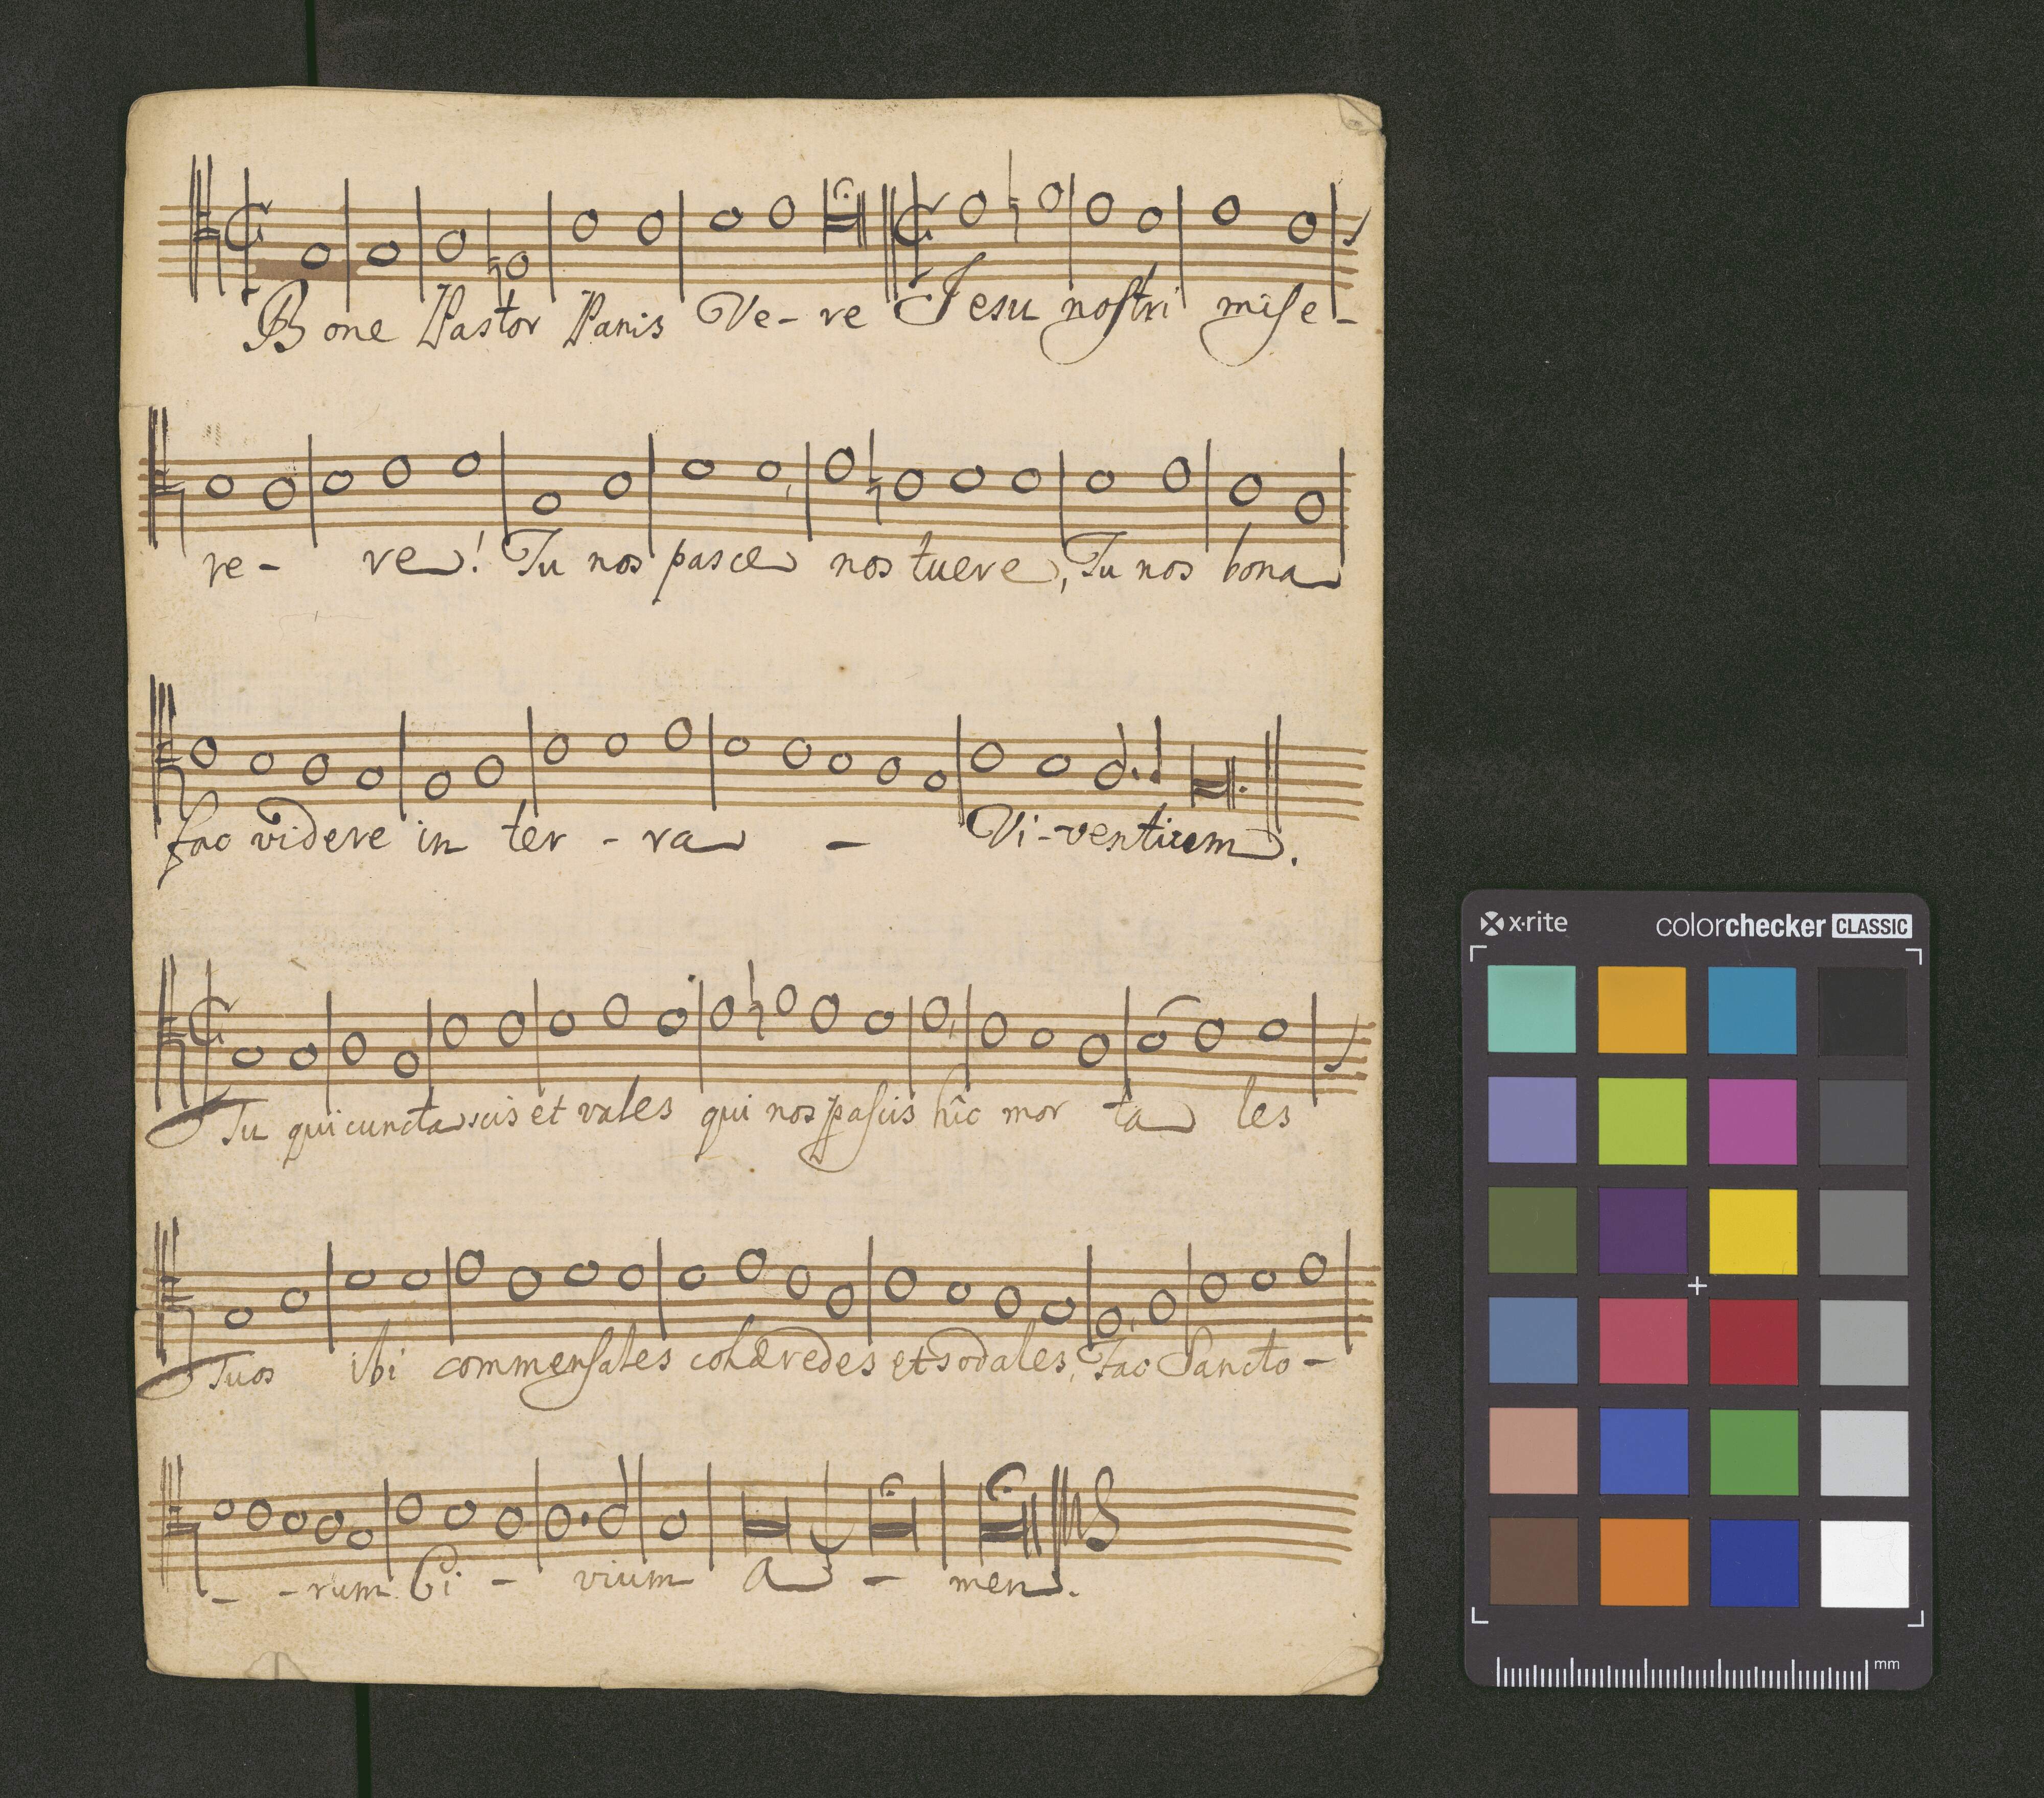 Bone Pastor Panis Ve- re Jesu noſtri miſe-
re- re! Tu nos pasce nos tuere, Tu nos bona
fac videre in ter - ra - Vi-ventium.
Tu qui cuncta scis et vales qui nos paſcis hîc mor ta les
Tuos ibi commenſales cohæredes et sodales, Fac Sancto-
- -rum Ci - vium A - men.
x·rite colorchecker CLASSIC
mm